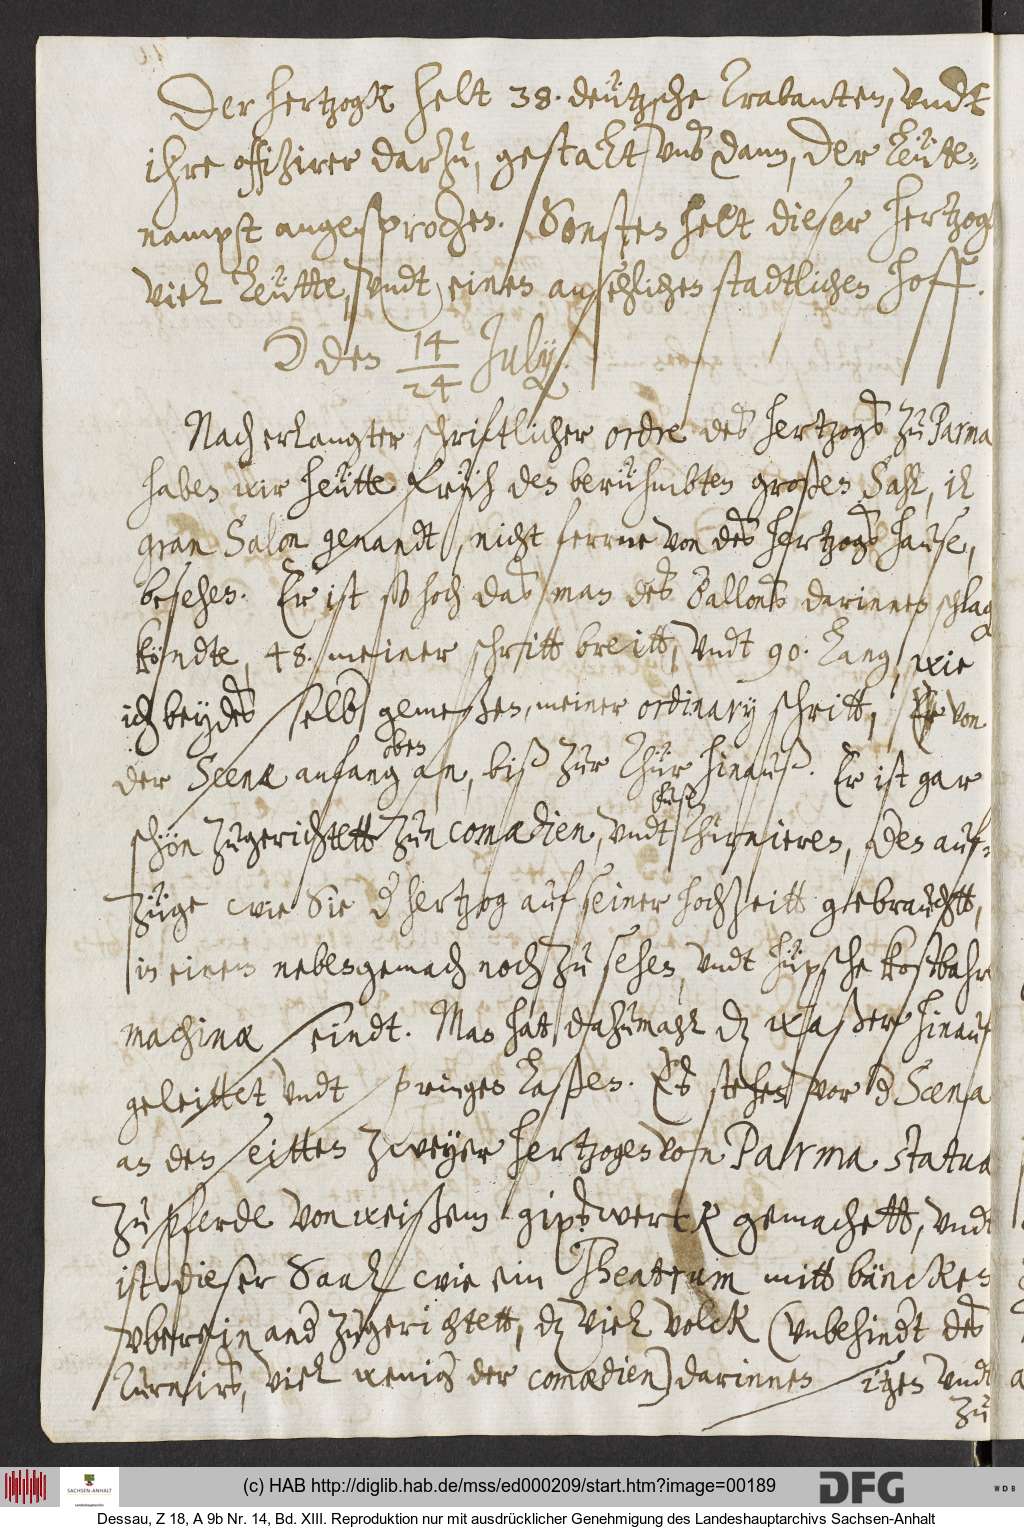 Der hertzogk helt 38. deützsche Trabanten, vndt
ihre offizirer darzu, gestalt vns dann, der leüte-
nampst angesprochen. Sonsten helt dieser hertzog
viel leütte, vndt einen ansehlichen stadtlichen hoff.
den 14/24 July.
Nach erlangter schriftlicher ordre des hertzogs zu Parma
haben wir heütte früh den berühmbten großen Sahl, il
gran Salon genandt, nicht ferrne von des hertzogs hause,
besehen. Er ist so hoch das man des Ballons darinnen schlag
köndte, 48. meiner schritt breitt, vndt 90. lang, wie
ich beydes selbst gemeßen, meiner ordinary schritt, von
der Scenæ anfang oben an, biß zur thür hinauß. Er ist gar
schön zugerichtett zun comœdien, vndt thurnieren, den auf-
züge wie Sie d hertzog auf seiner hochzeitt gebrauchtt,
in einem nebengemach noch zu sehen, vndt hüpsche kostbahre
machinæ seindt. Man hatt dazumahl dz waßer hinauf
geleittet vndt springen laßen. Es stehen vor d Scena
an den seitten zweyer hertzogen von Parma statua
zu pferde von weißem gipswerck gemachett, vndt
ist dieser Saal wie ein Theatrum mitt bäncken
vbereinand zugerichtett, dz viel volck (vnbehindt des
turnirs, viel wenig der comœdien) darinnen sitzen vndt
zu
(c) HAB http://diglib.hab.de/mss/ed000209/start.htm?image=00189
SACHSEN-ANHALT
DFG
WDB
Dessau, Z 18, A 9b Nr. 14, Bd. XIII. Reproduktion nur mit ausdrücklicher Genehmigung des Landeshauptarchivs Sachsen-Anhalt